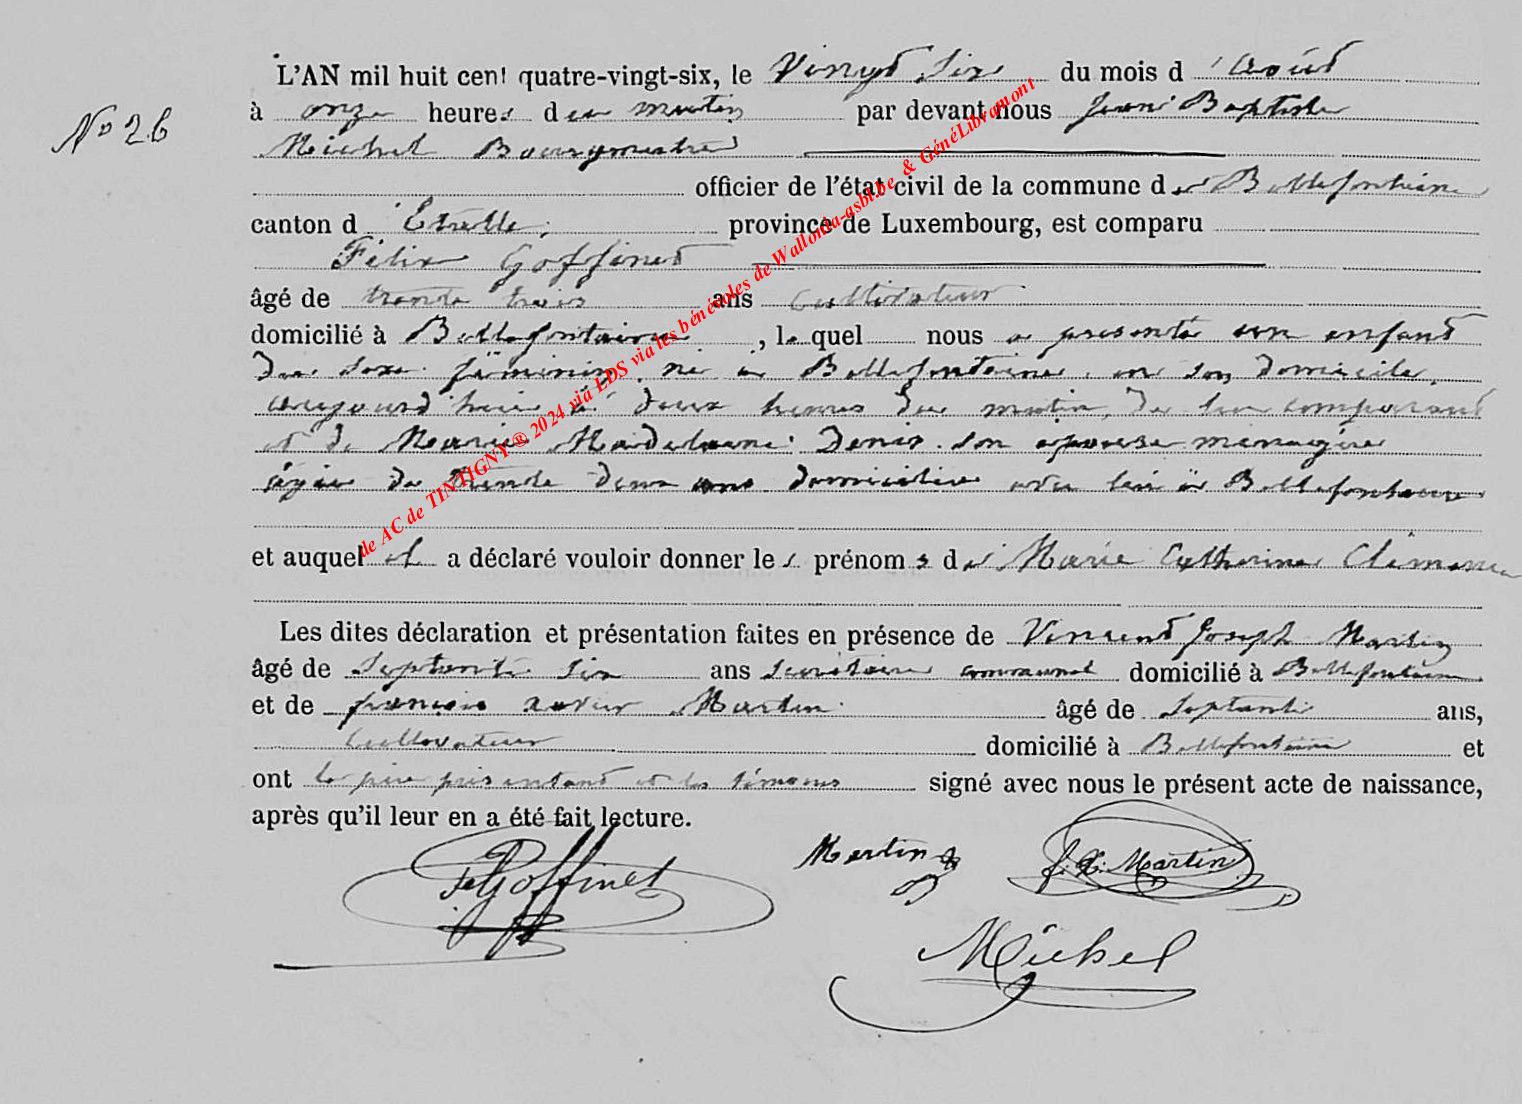 L'AN mil huit cent quatre-vingt-six, le Vingt six du mois d'août
N° 26
à onze heures du matin par devant nous Jean Baptiste
Michel Bourgmestre
officier de l'état civil de la commune de Bellefontaine
canton d'Etalle, province de Luxembourg, est comparu
Félix Goffinet
âgé de trente trois ans Cultivateur
domicilié à Bellefontaine, lequel nous a présenté un enfant
du sexe féminin, né à Bellefontaine, en son domicile,
aujourd'hui à deux heures du matin, de lui comparant
et de Marie Madeleine Denis son épouse ménagère
âgée de trente deux ans domiciliée avec lui à Bellefontaine
et auquel il a déclaré vouloir donner les prénoms de Marie Catherine Clémence
Les dites déclaration et présentation faites en présence de Vincent Joseph Martin
âgé de septante six ans secrétaire communal domicilié à Bellefontaine
et de françois xavier Martin âgé de septante ans,
Cultivateur domicilié à Bellefontaine et
ont le père présentant et les témoins signé avec nous le présent acte de naissance,
après qu'il leur en a été fait lecture.
Goffinet
Martin
f. X. Martin
Michel
de AC de TINTIGNY® 2024 via LDS via les bénévoles de Wallonia-asbl.be & GénéLibramont